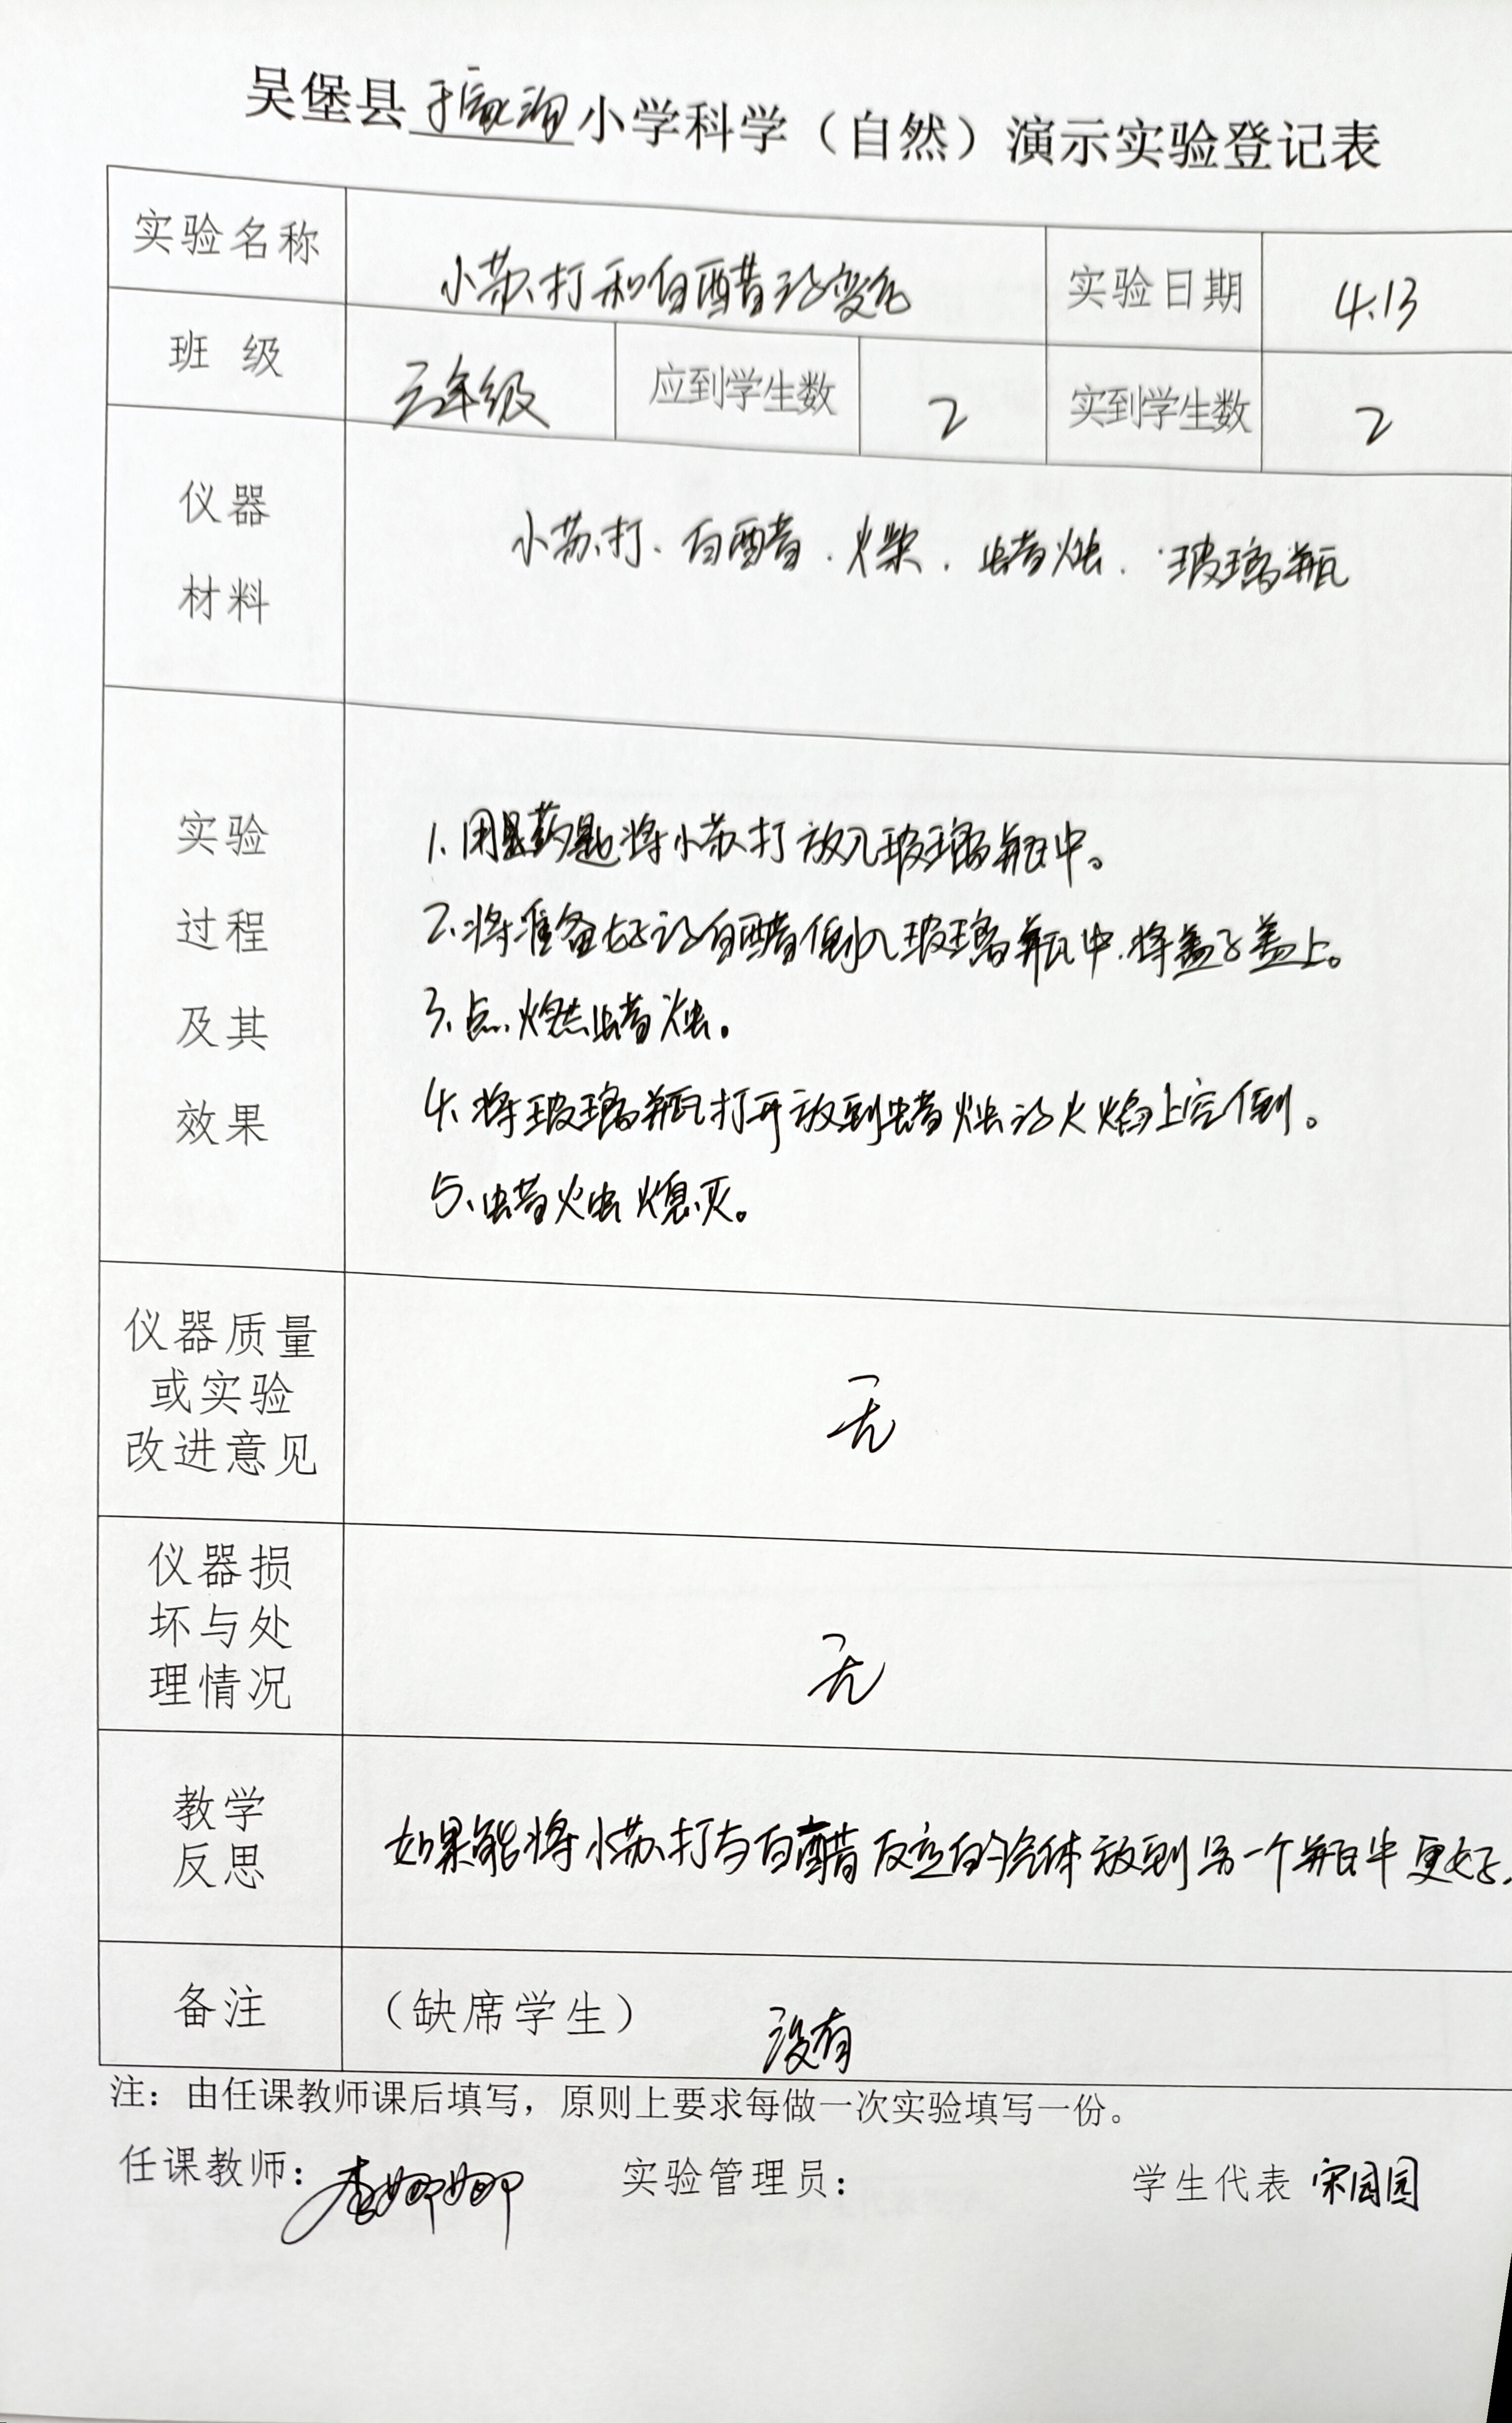 吴堡县于家沟小学科学（自然）演示实验登记表
实验名称 小苏打和白醋的变化 实验日期 4.13
班级 三年级 应到学生数 2 实到学生数 2
仪器 小苏打、白醋、火柴、蜡烛、玻璃瓶
材料
实验 1、用药匙将小苏打放入玻璃瓶中。
过程 2、将准备好的白醋倒入玻璃瓶中，将盖子盖上。
及其 3、点燃蜡烛。
效果 4、将玻璃瓶打开放到蜡烛的火焰上空倒。
5、蜡烛熄灭。
仪器质量
或实验 无
改进意见
仪器损
坏与处 无
理情况
教学
反思 如果能将小苏打与白醋反应的气体放到另一个瓶中更好。
备注 （缺席学生） 没有
注：由任课教师课后填写，原则上要求每做一次实验填写一份。
任课教师：李娜娜 实验管理员： 学生代表 宋园园